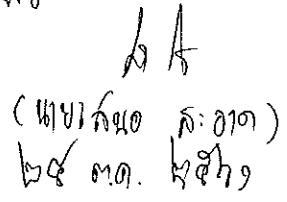 (นายเสนอ สะอาด)
๒๕ ต.ค. ๒๕๖๑